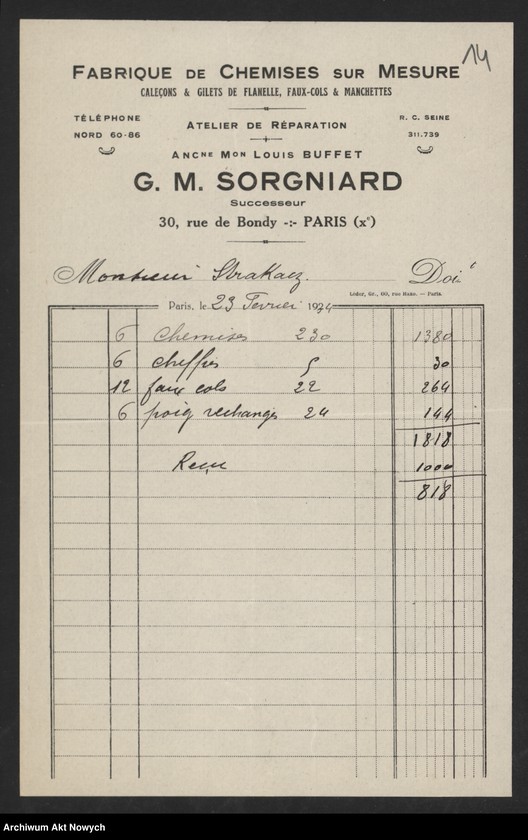 14
FABRIQUE DE CHEMISES SUR MESURE
CALEÇONS & GILETS DE FLANELLE, FAUX-COLS & MANCHETTES
TÉLÉPHONE
NORD 60-86
ATELIER DE RÉPARATION
R. C. SEINE
311.739
ANCNE MON LOUIS BUFFET
G. M. SORGNIARD
Successeur
30, rue de Bondy -:- PARIS (xe)
Monsieur Strakacz. Doit
Ledur, Gr., 60, rue Haxo. — Paris
Paris, le 23 Fevrier 1924
6 Chemises 230 1380
6 chiffres 5 30
12 faux cols 22 264
6 poig rechanges 24 144
1818
Reçu 1000
818
Archiwum Akt Nowych